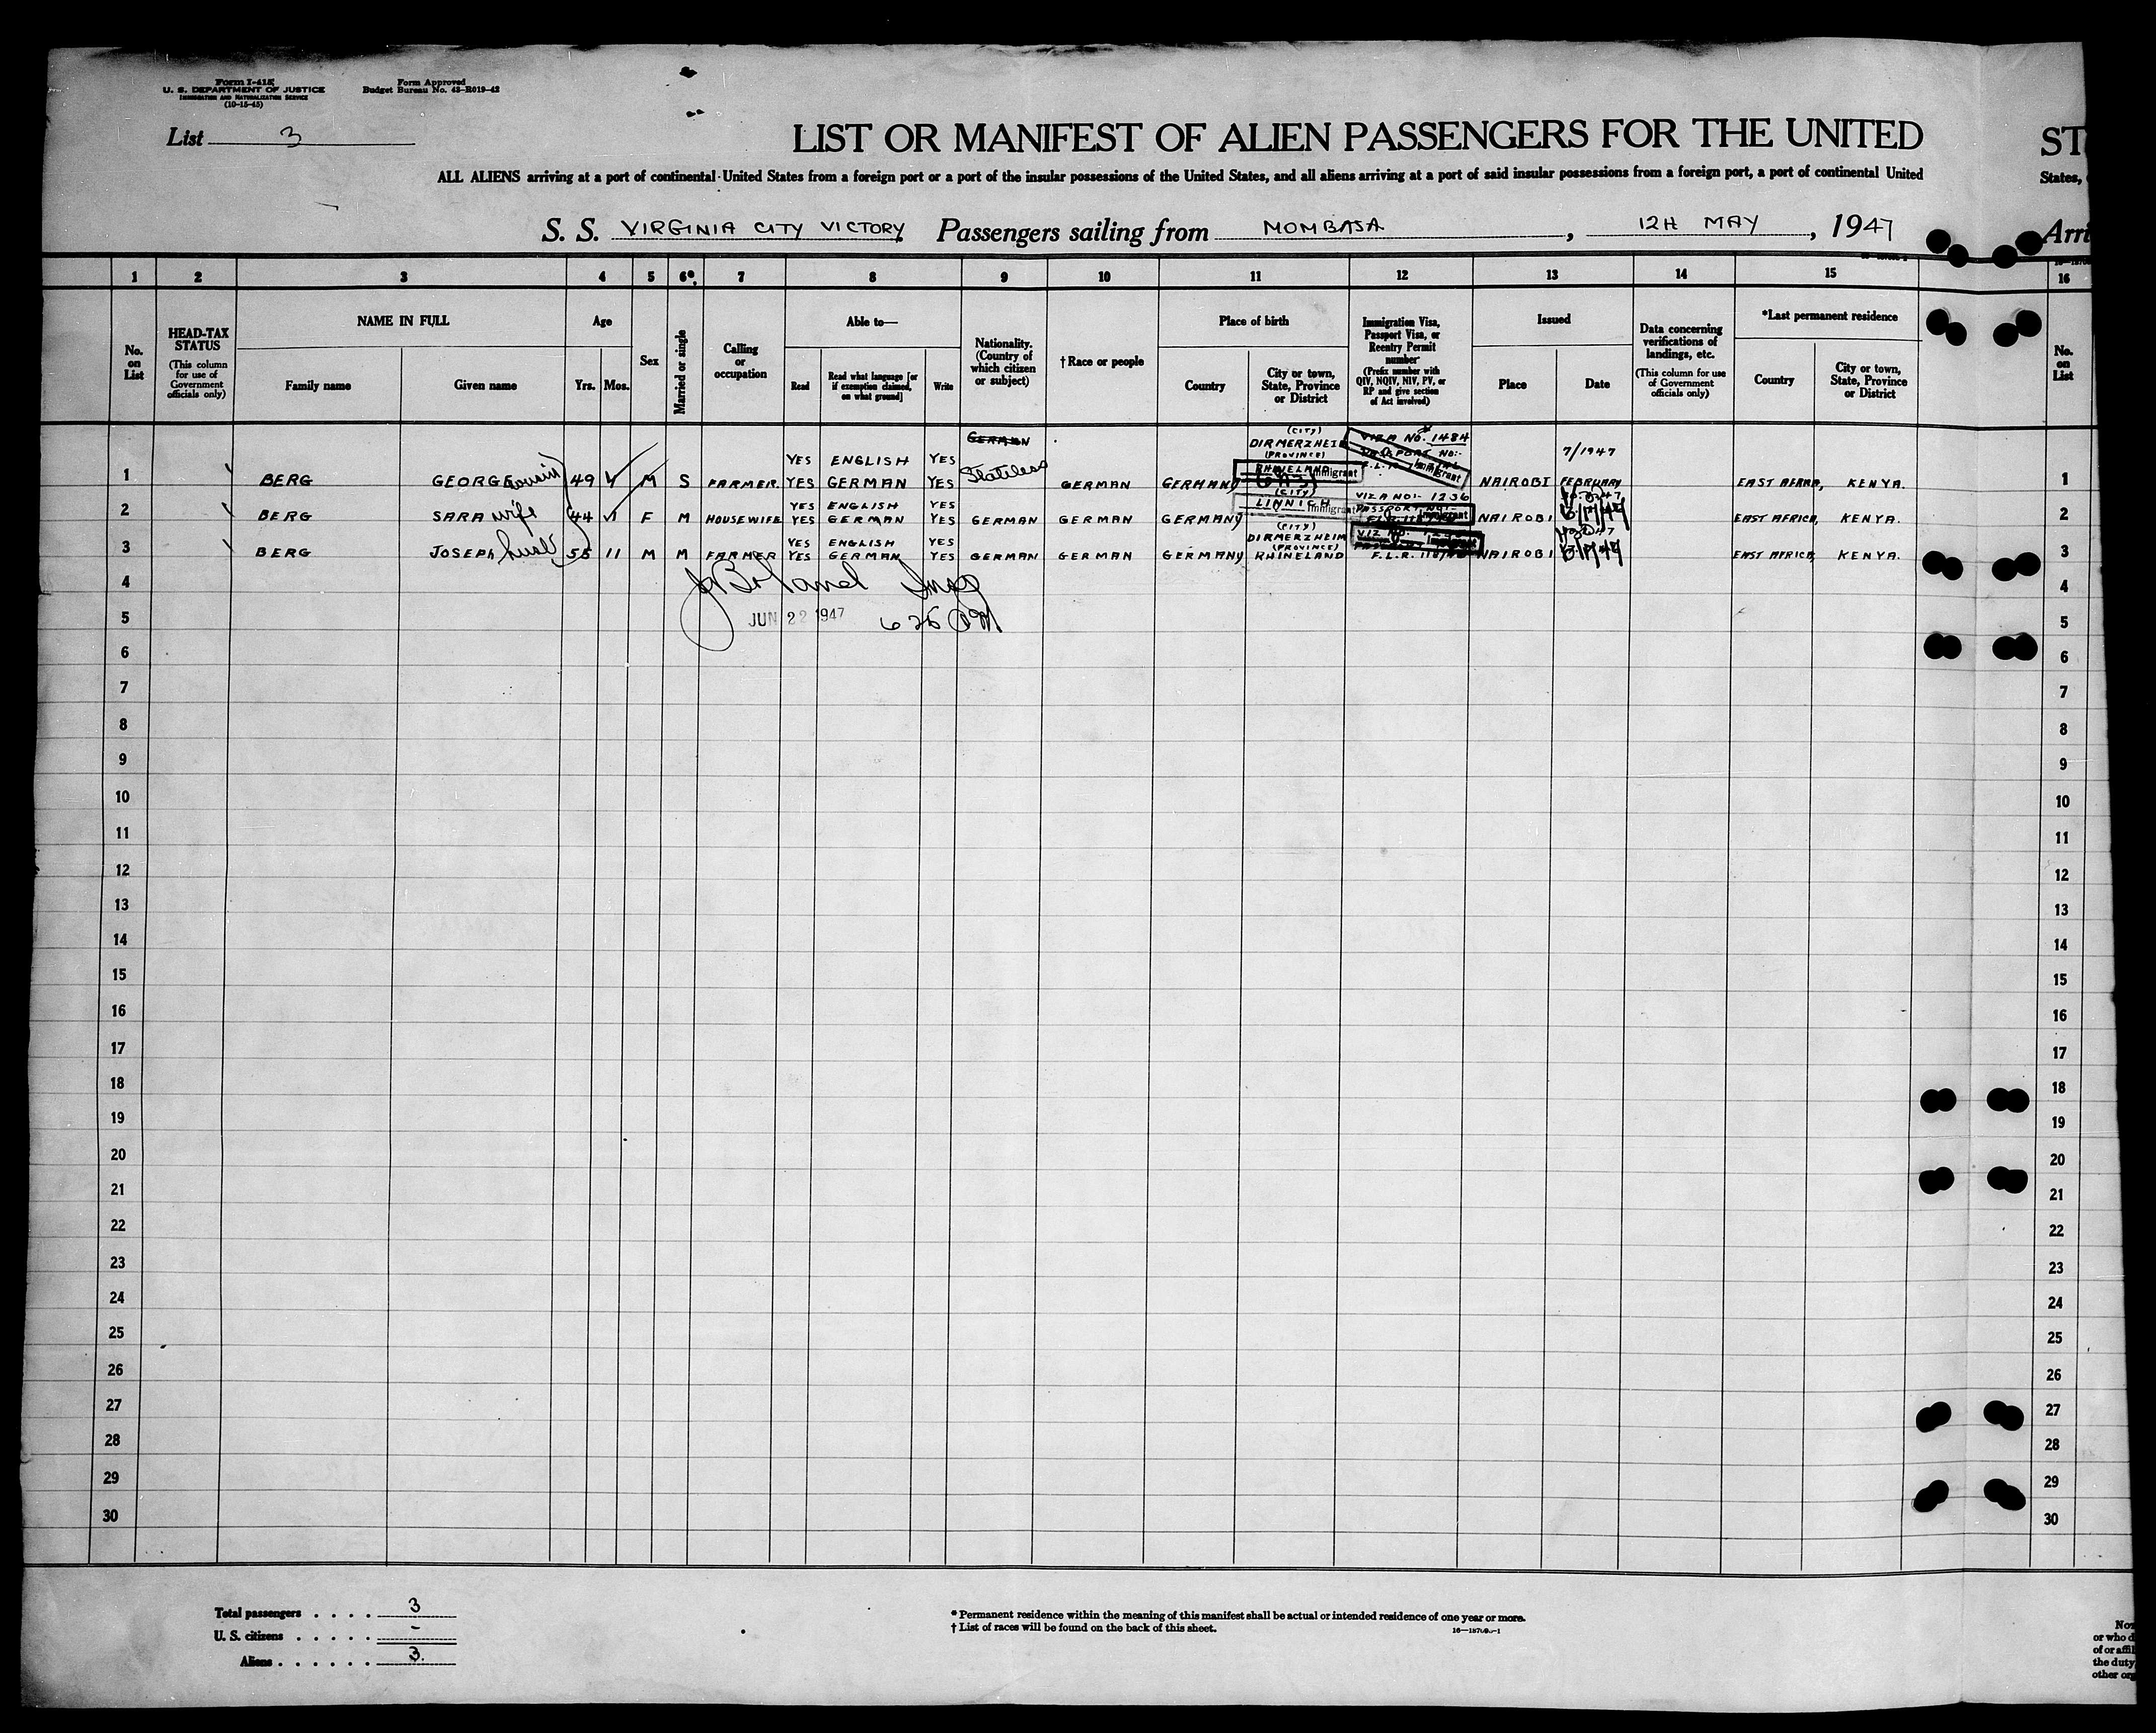 Form I-415
U. S. DEPARTMENT OF JUSTICE
IMMIGRATION AND NATURALIZATION SERVICE
(10-15-45)
Form Approved
Budget Bureau No. 43-R019-42
List 3
LIST OR MANIFEST OF ALIEN PASSENGERS FOR THE UNITED
ST
ALL ALIENS arriving at a port of continental United States from a foreign port or a port of the insular possessions of the United States, and all aliens arriving at a port of said insular possessions from a foreign port, a port of continental United
States,
S. S. VIRGINIA CITY VICTORY Passengers sailing from MOMBASA, 12H MAY, 1947
Arri
1 2 3 4 5 6 7 8 9 10 11 12 13 14 15 16
No. on List
HEAD-TAX STATUS
(This column for use of Government officials only)
NAME IN FULL
Family name
Given name
Age
Yrs. Mos.
Sex
Married or single
Calling or occupation
Able to—
Read
Read what language [or if exemption claimed, on what ground]
Write
Nationality. (Country of which citizen or subject)
† Race or people
Place of birth
Country
City or town, State, Province or District
Immigration Visa, Passport Visa, or Reentry Permit number
(Prefix number with QIV, NQIV, NIV, PV, or RP and give section of Act involved)
Issued
Place
Date
Data concerning verifications of landings, etc.
(This column for use of Government officials only)
*Last permanent residence
Country
City or town, State, Province or District
No. on List
GERMAN (CITY) VIZA NO. 1484
DIRMERZHEIM PASSPORT NO:- 7/1947
YES ENGLISH YES (PROVINCE)
1 BERG GEORGE cousin 49 M S FARMER YES GERMAN YES Stateless GERMAN GERMANY RHINELAND Immigrant Immigrant NAIROBI FEBRUARY EAST AFRICA, KENYA. 1
YES ENGLISH YES (CITY) VIZA NO:- 1236
2 BERG SARA wife 44 F M HOUSEWIFE YES GERMAN YES GERMAN GERMAN GERMANY LINNICH Immigrant PASSPORT NO:- Immigrant NAIROBI EAST AFRICA, KENYA. 2
YES ENGLISH YES (CITY) DIRMERZHEIM (PROVINCE)
3 BERG JOSEPH husb 55 11 M M FARMER YES GERMAN YES GERMAN GERMAN GERMANY RHINELAND F.L.R. NAIROBI EAST AFRICA, KENYA. 3
4 4
JUN 22 1947 6 25 PM
5 5
6 6
7 7
8 8
9 9
10 10
11 11
12 12
13 13
14 14
15 15
16 16
17 17
18 18
19 19
20 20
21 21
22 22
23 23
24 24
25 25
26 26
27 27
28 28
29 29
30 30
Total passengers . . . . 3
U. S. citizens . . . . . -
Aliens . . . . . . 3.
* Permanent residence within the meaning of this manifest shall be actual or intended residence of one year or more.
† List of races will be found on the back of this sheet.
or who d
of or affil
the duty
other org